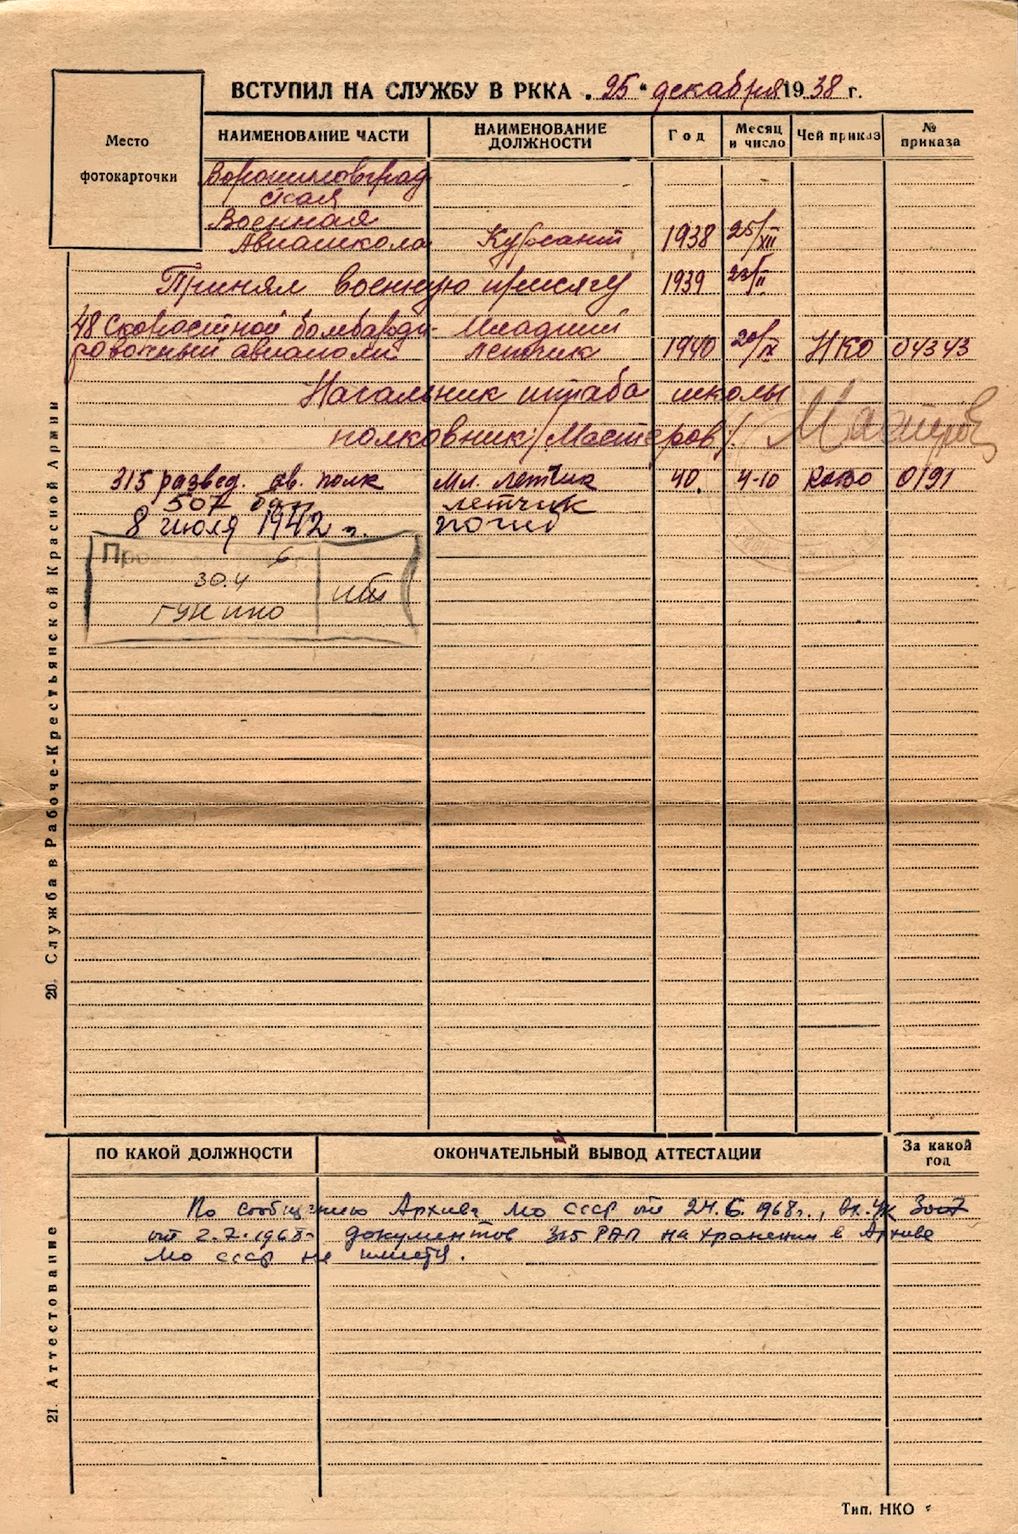 ВСТУПИЛ НА СЛУЖБУ В РККА „25“ декабря 1938 г.
Место
фотокарточки
НАИМЕНОВАНИЕ ЧАСТИ
НАИМЕНОВАНИЕ ДОЛЖНОСТИ
Год
Месяц и число
Чей приказ
№ приказа
Ворошиловград
ская
Военная
Авиашкола Курсант 1938 25/XII
Принял военную присягу 1939 23/II
48 Скоростной бомбарди- Младший
ровочный авиаполк летчик 1940 20/IX НКО 04343
Начальник штаба школы
полковник /Мастеров/.
315 развед. ав. полк мл. летчик 40. 4-10 КОВО 0191
507 летчик
8 июля 1942 г. погиб
30.4
ГУК НКО
20. Служба в Рабоче-Крестьянской Красной Армии
ПО КАКОЙ ДОЛЖНОСТИ
ОКОНЧАТЕЛЬНЫЙ ВЫВОД АТТЕСТАЦИИ
За какой год
По сообщению Архива МО СССР от 24.6.1968г., вх. № 3007
от 2.7.1968г. документов 315 РАП на хранении в Архиве
МО СССР не имеется.
21. Аттестование
Тип. НКО